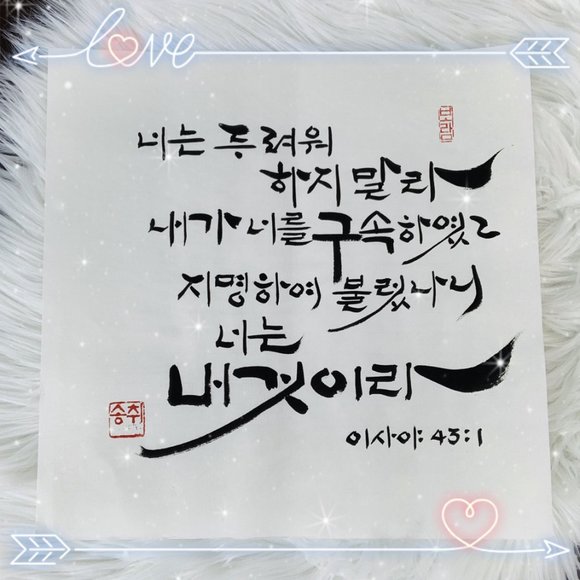 love
보람
너는 두려워
하지 말라
내가 너를 구속하였고
지명하여 불렀나니
너는
내것이라
송취
이사야: 43:1